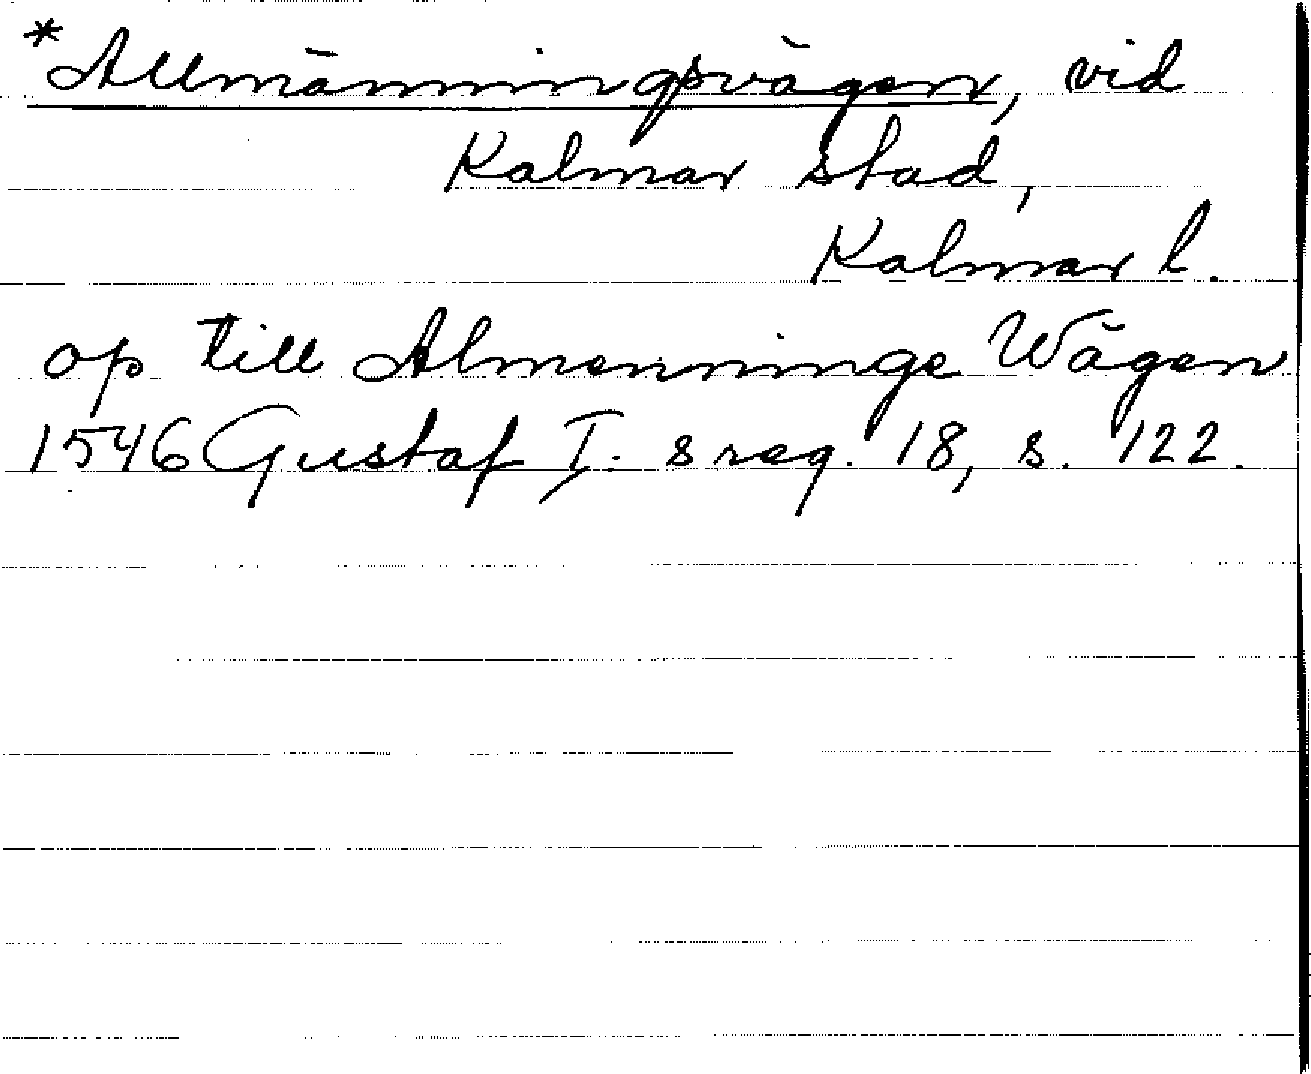 *Allmänningsvägen, vid
Kalmar stad,
Kalmar l.
op till Almenninge Wägen
1546 Gustaf I. s reg. 18, s. 122.